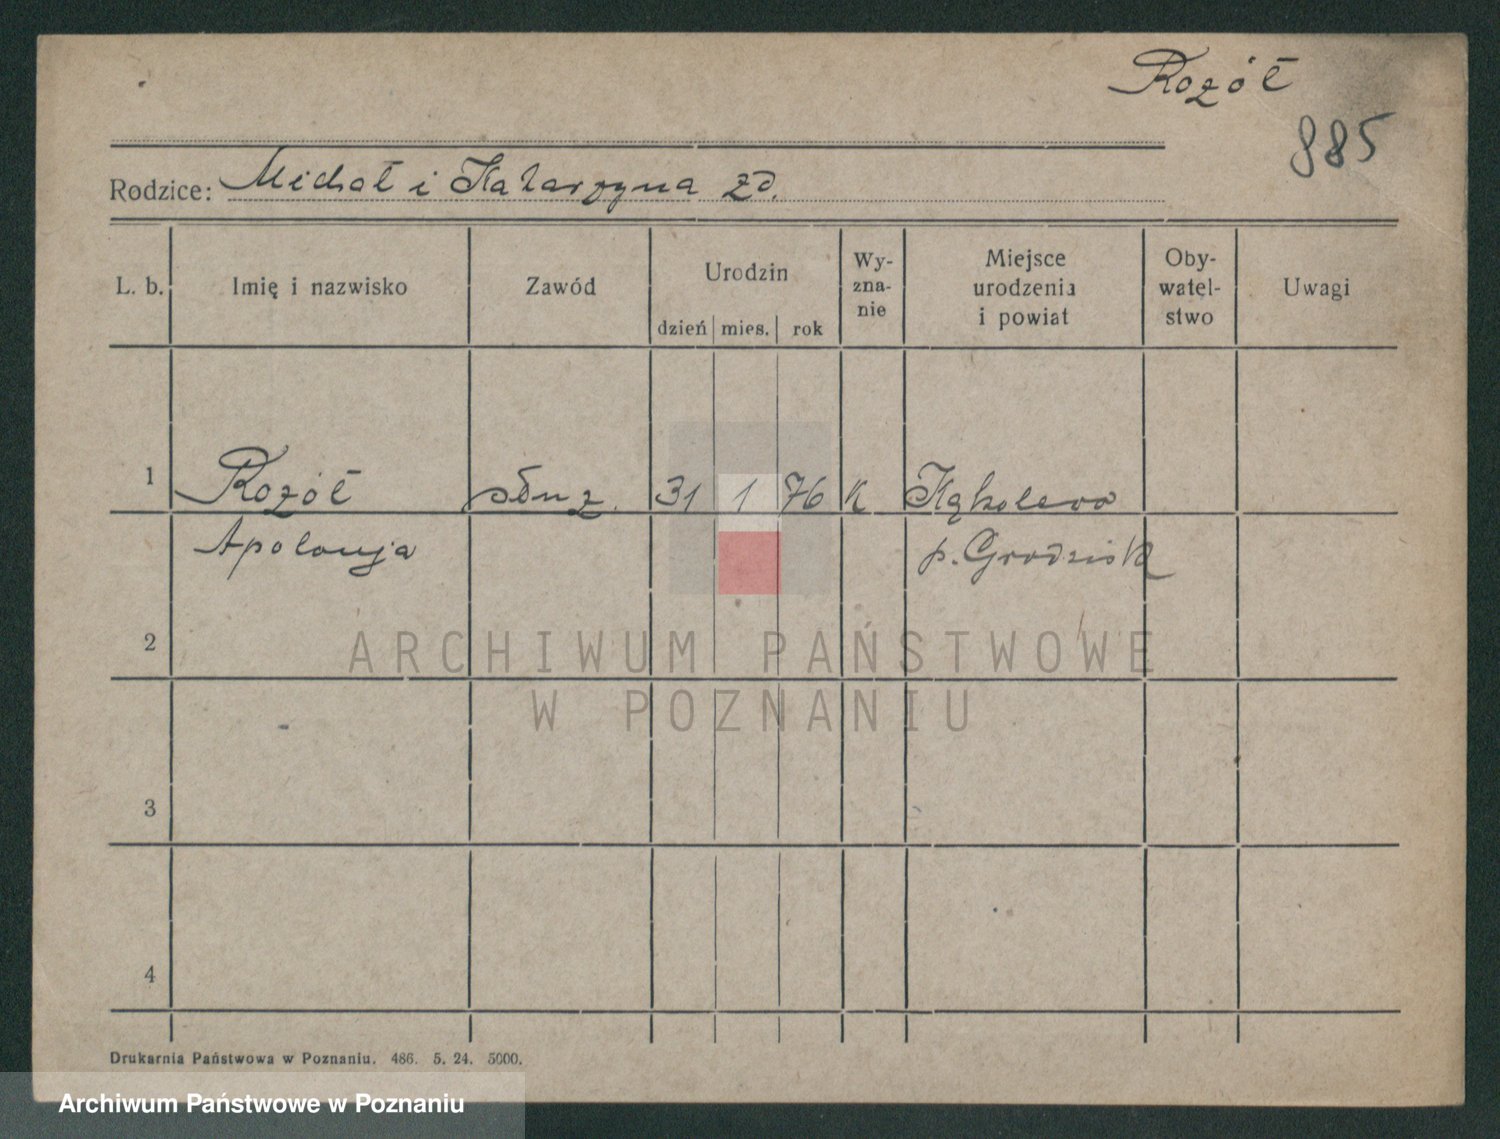 Rozół
885
Rodzice: Michał i Katarzyna zd.
L. b.
Imię i nazwisko
Zawód
Urodzin
dzień mies. rok
Wy-
zna-
nie
Miejsce
urodzenia
i powiat
Oby-
watel-
stwo
Uwagi
1 Rozół służ. 31 1 76 K Kąkolewo
Apolonja p. Grodzisk
2
ARCHIWUM PAŃSTWOWE
W POZNANIU
3
4
Drukarnia Państwowa w Poznaniu. 486. 5. 24. 5000.
Archiwum Państwowe w Poznaniu